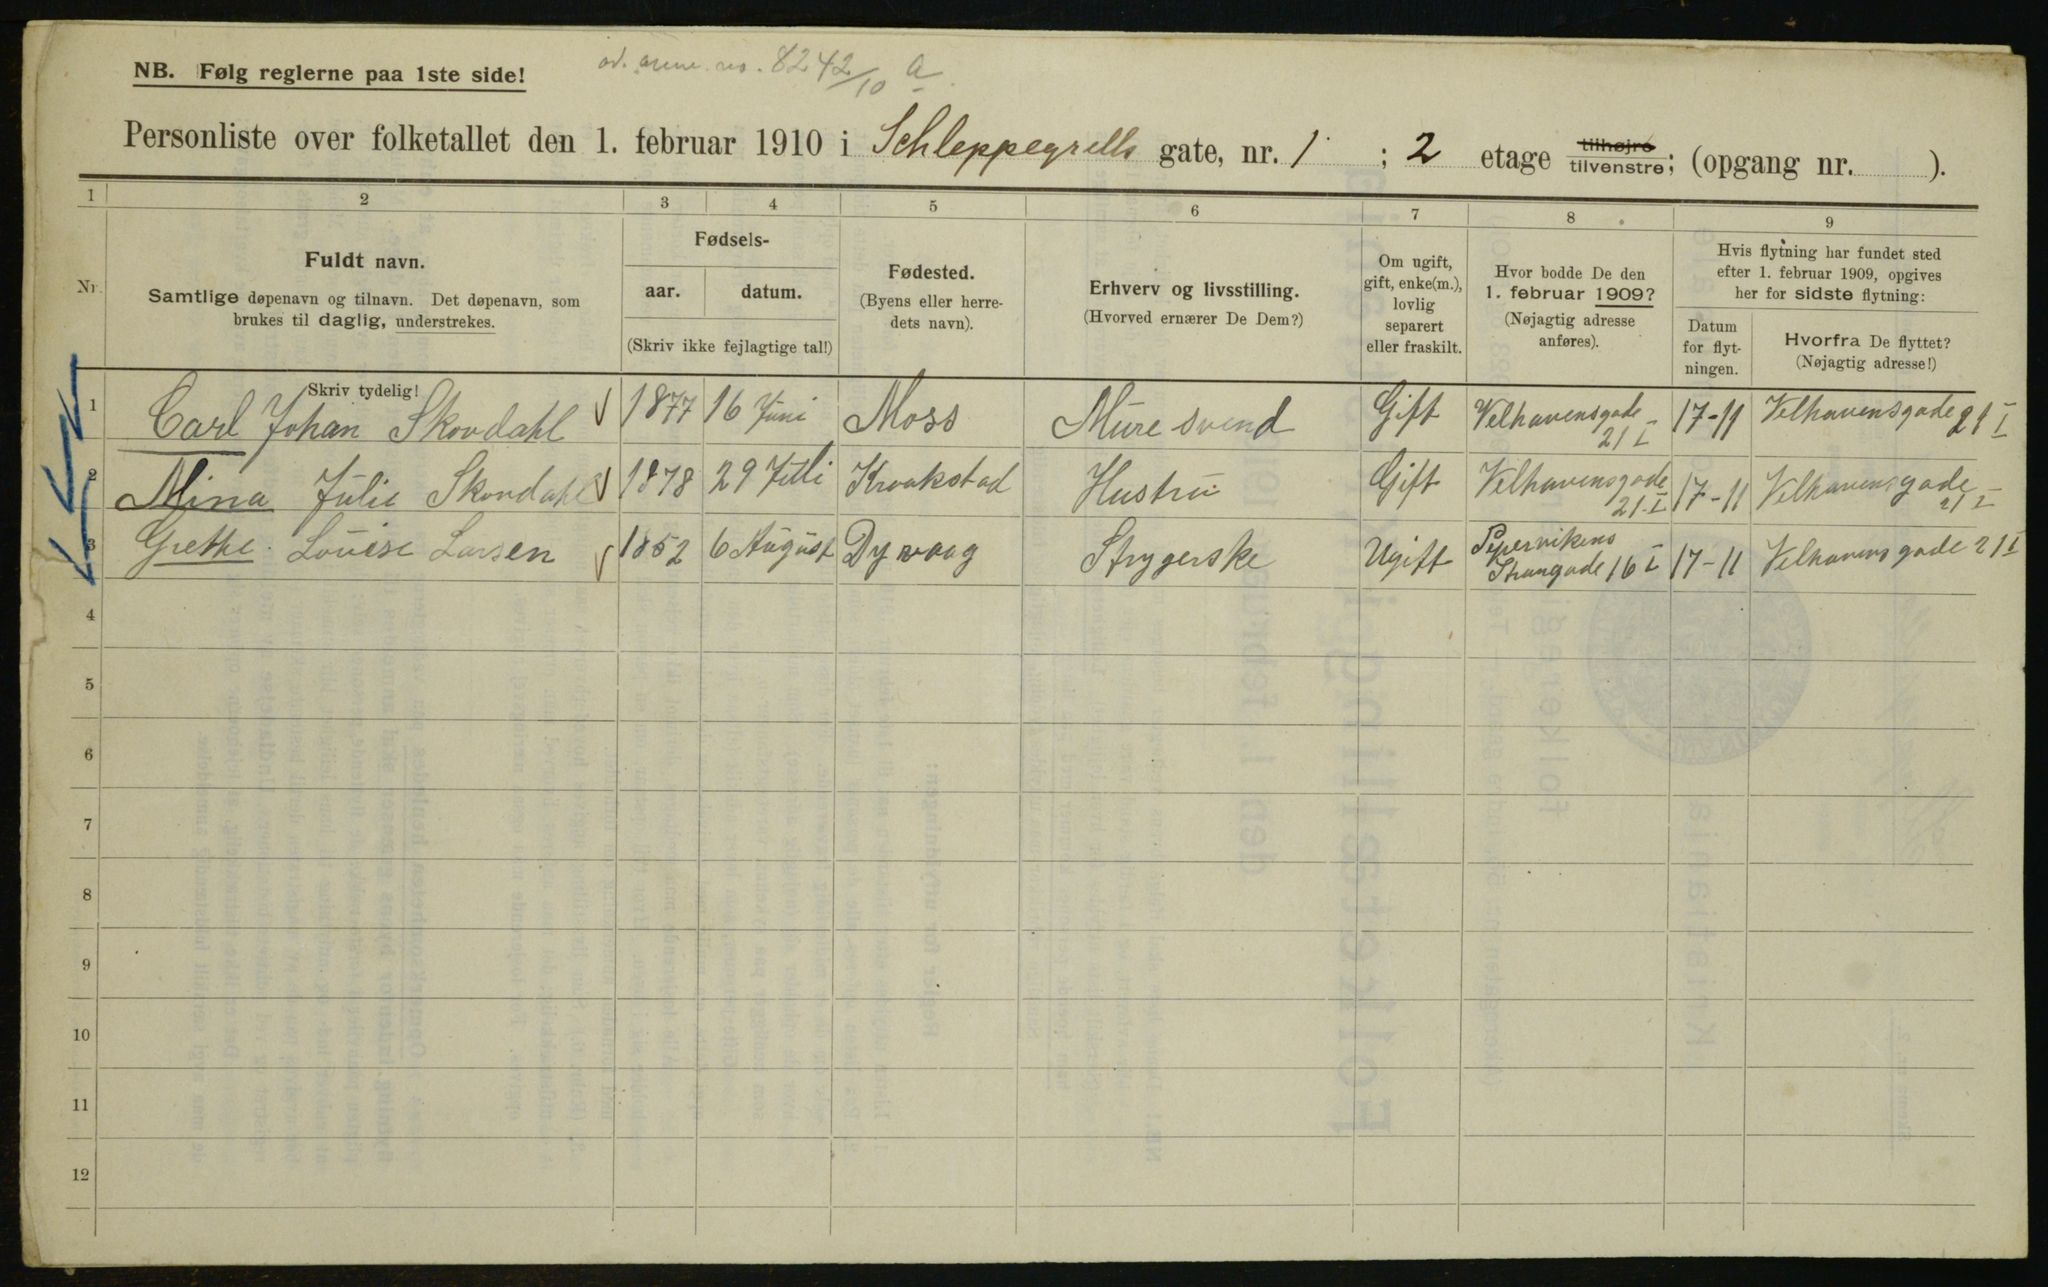 NB. Følg reglerne paa 1ste side!
8242/10 a
Personliste over folketallet den 1. februar 1910 i Schleppegrells gate, nr. 1 ; 2 etage tilhøjre tilvenstre; (opgang nr. ).
1 2 3 4 5 6 7 8 9
Nr. Fuldt navn.
Samtlige døpenavn og tilnavn. Det døpenavn, som
brukes til daglig, understrekes.
Skriv tydelig!
Fødsels-
aar. datum.
(Skriv ikke fejlagtige tal!)
Fødested.
(Byens eller herre-
dets navn).
Erhverv og livsstilling.
(Hvorved ernærer De Dem?)
Om ugift,
gift, enke(m.),
lovlig
separert
eller fraskilt.
Hvor bodde De den
1. februar 1909?
(Nøjagtig adresse
anføres).
Hvis flytning har fundet sted
efter 1. februar 1909, opgives
her for sidste flytning:
Datum
for flyt-
ningen.
Hvorfra De flyttet?
(Nøjagtig adresse!)
1 Carl Johan Skovdahl 1877 16 Juni Moss Mure svend Gift Velhavensgade 21 I 17-11 Velhavensgade 21 I
2 Mina Julie Skovdahl 1878 29 Juli Kraakstad Hustru Gift Velhavensgade 21 I 17-11 Velhavensgade 21 I
3 Grethe Louise Larsen 1852 6 August Dyvaag Strygerske Ugift Pipervikens Strangade 16 I 17-11 Velhavensgade 21 I
4
5
6
7
8
9
10
11
12